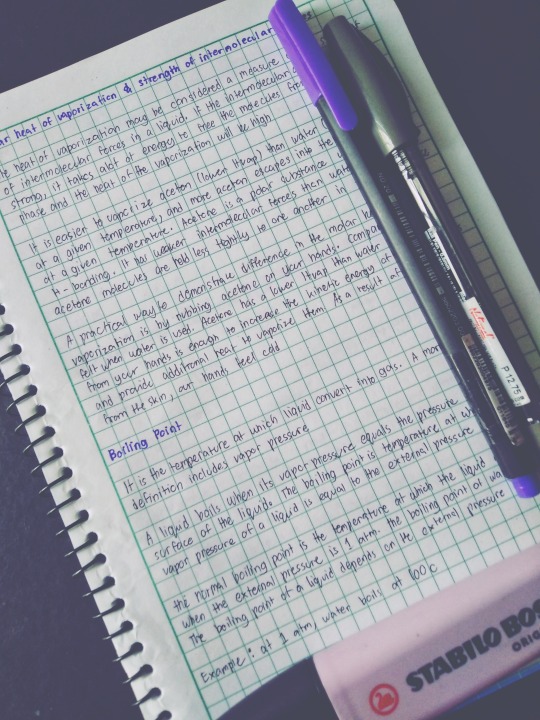 ar heat of vaporization & strength of intermolecular
he heat of vaporization may be considered a measure
of intermolecular forces in a liquid. If the intermolecular
strong, it takes alot of energy to free the molecules fr
phase and the heat of the vaporization will be high
It is easier to vaporize aceton (lower Hvap) then water
at a given temperature, and more aceton escapes into the
at a given temperature. Acetone is a polar substance
H-bonding. It has weaker intermolecular forces than wate
acetone molecules are held less tightly to are another in
A practical way to demonstrate difference in the molar he
vaporization is by rubbing acetone on your hands. Compa
felt when water is used. Acetone has a lower Hvap than water
from your hands is enough to increase the kinetic energy of
and provide additional heat to vaporize them. As a result
from the skin, our hands feel cold
Boiling Point
It is the temperature at which liquid convert into gas. A mor
definition includes vapor pressure
A liquid boils when its vapor pressure equals the pressure
surface of the liquids. The boiling point is temperature at w
vapor pressure of a liquid is equal to the external pressure
the normal boiling point is the temperature at which the liquid
when the external pressure is 1 atm. the boiling point of wa
The boiling point of a liquid depends on the external pressure
Example: at 1 atm, water boils at 100 c
P 12.75
STABILO BOS
ORIG